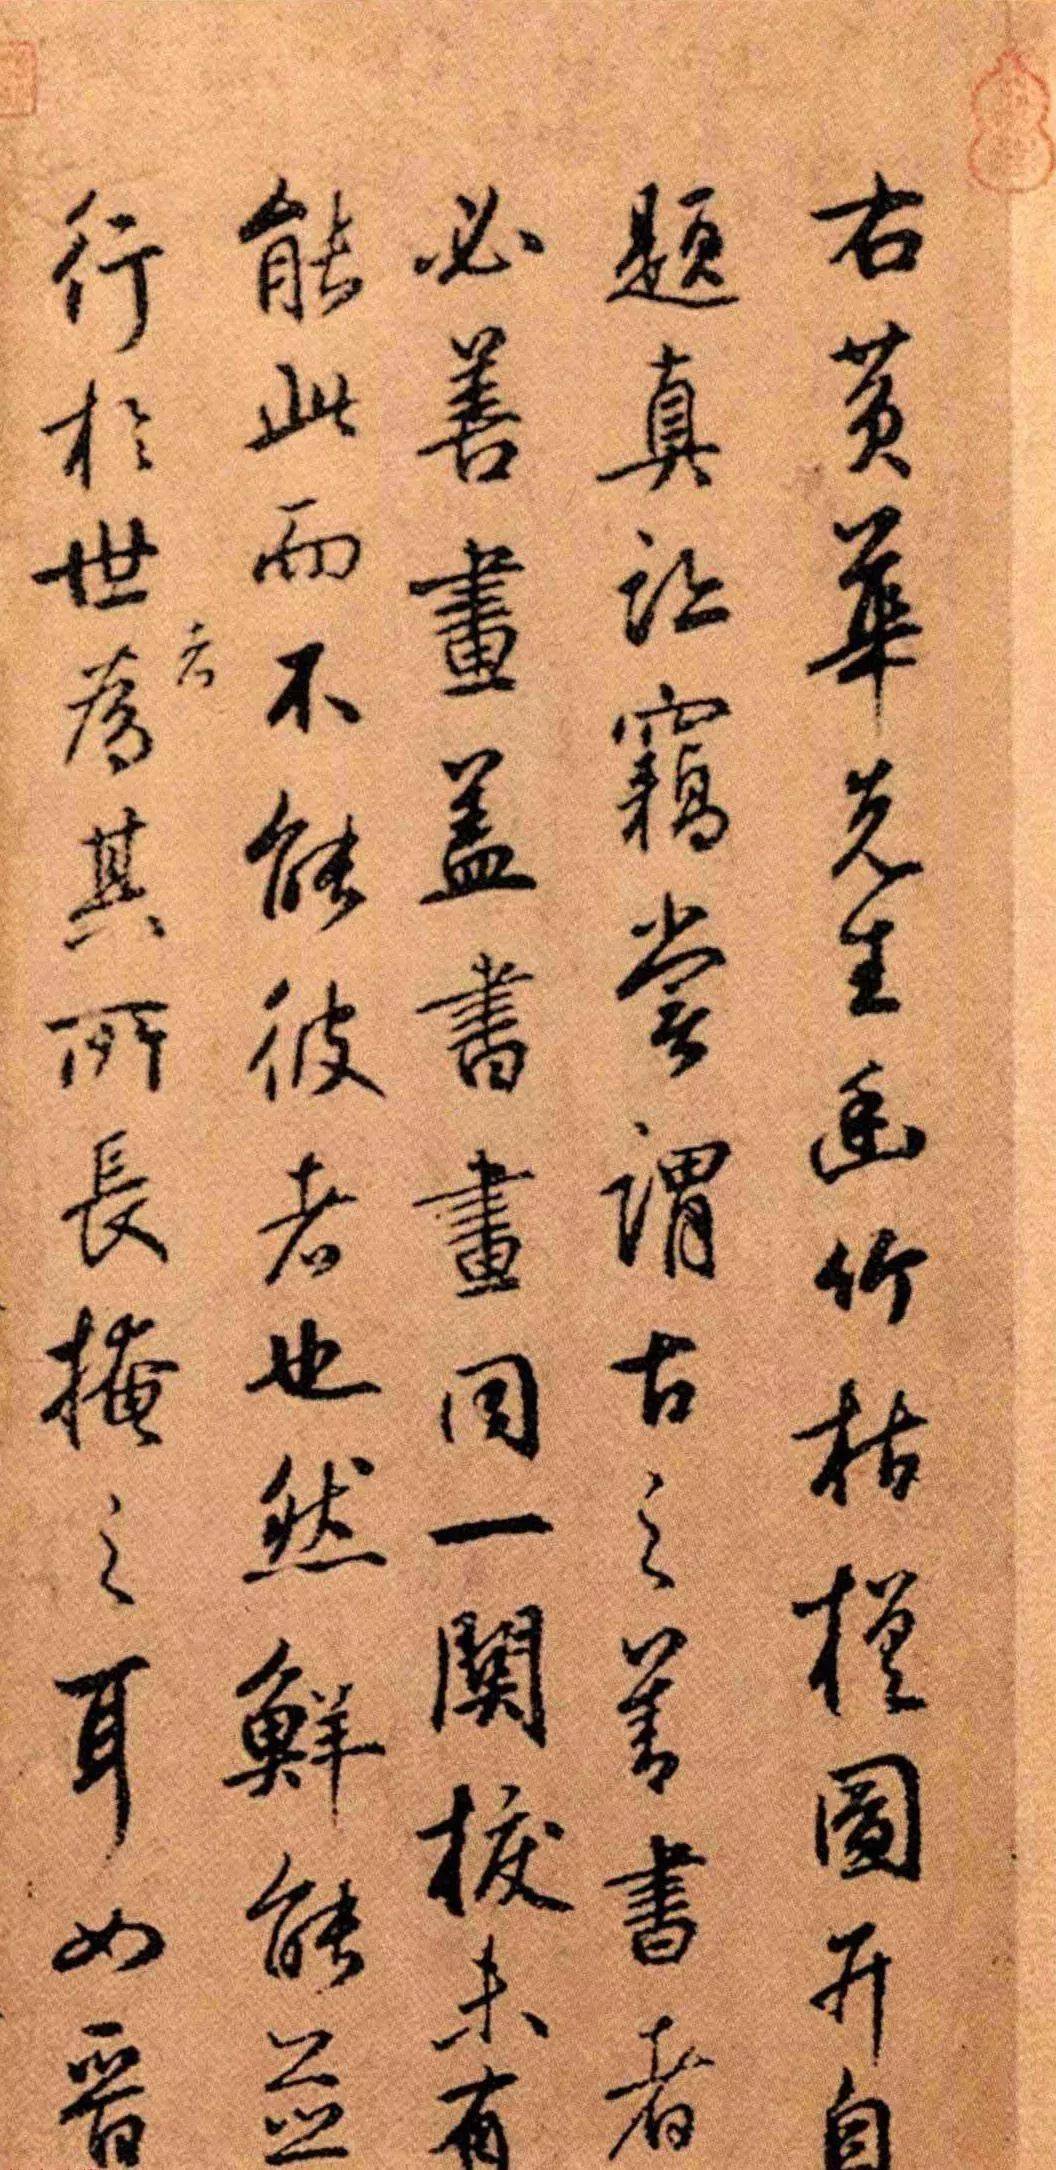 右黃華先生幽竹枯槎圖并自
題真跡竊嘗謂古之善書者
必善畫蓋書畫同一關棙未有
能此而不能彼者也然鮮能並
行於世者為其所長掩之耳如晉